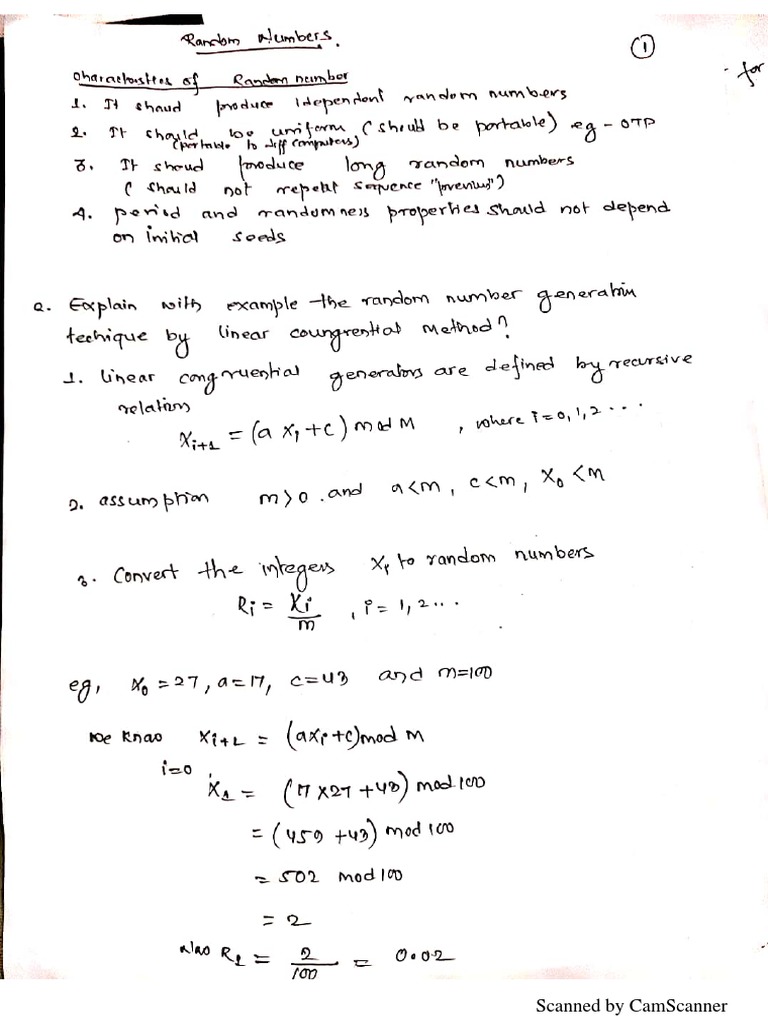 Random Numbers.
1
- for
Characteristics of Random number
1. It shoud produce idependent random numbers
2. It should be uniform (should be portable) eg - OTP
(portable to diff computers)
3. It shoud produce long random numbers
( should not repeat sequence "previous")
4. period and randomness properties should not depend
on initial seeds
Q. Explain with example the random number generation
techique by linear coungrential method?
1. linear congruential generators are defined by recursive
relation
Xi+1 = (a xi + c) mod M , where i=0,1,2 ...
2. assumption m>0 . and a<m, c<m, X0<m
3. Convert the integers Xi to random numbers
Ri = Xi/m , i = 1, 2 ...
eg, X0 = 27, a=17, c=43 and m=100
we know Xi+1 = (axi+c) mod M
i=0
X1 = (17 x27 +43) mod 100
= (459 +43) mod 100
= 502 mod 100
= 2
also R1 = 2/100 = 0.02
Scanned by CamScanner